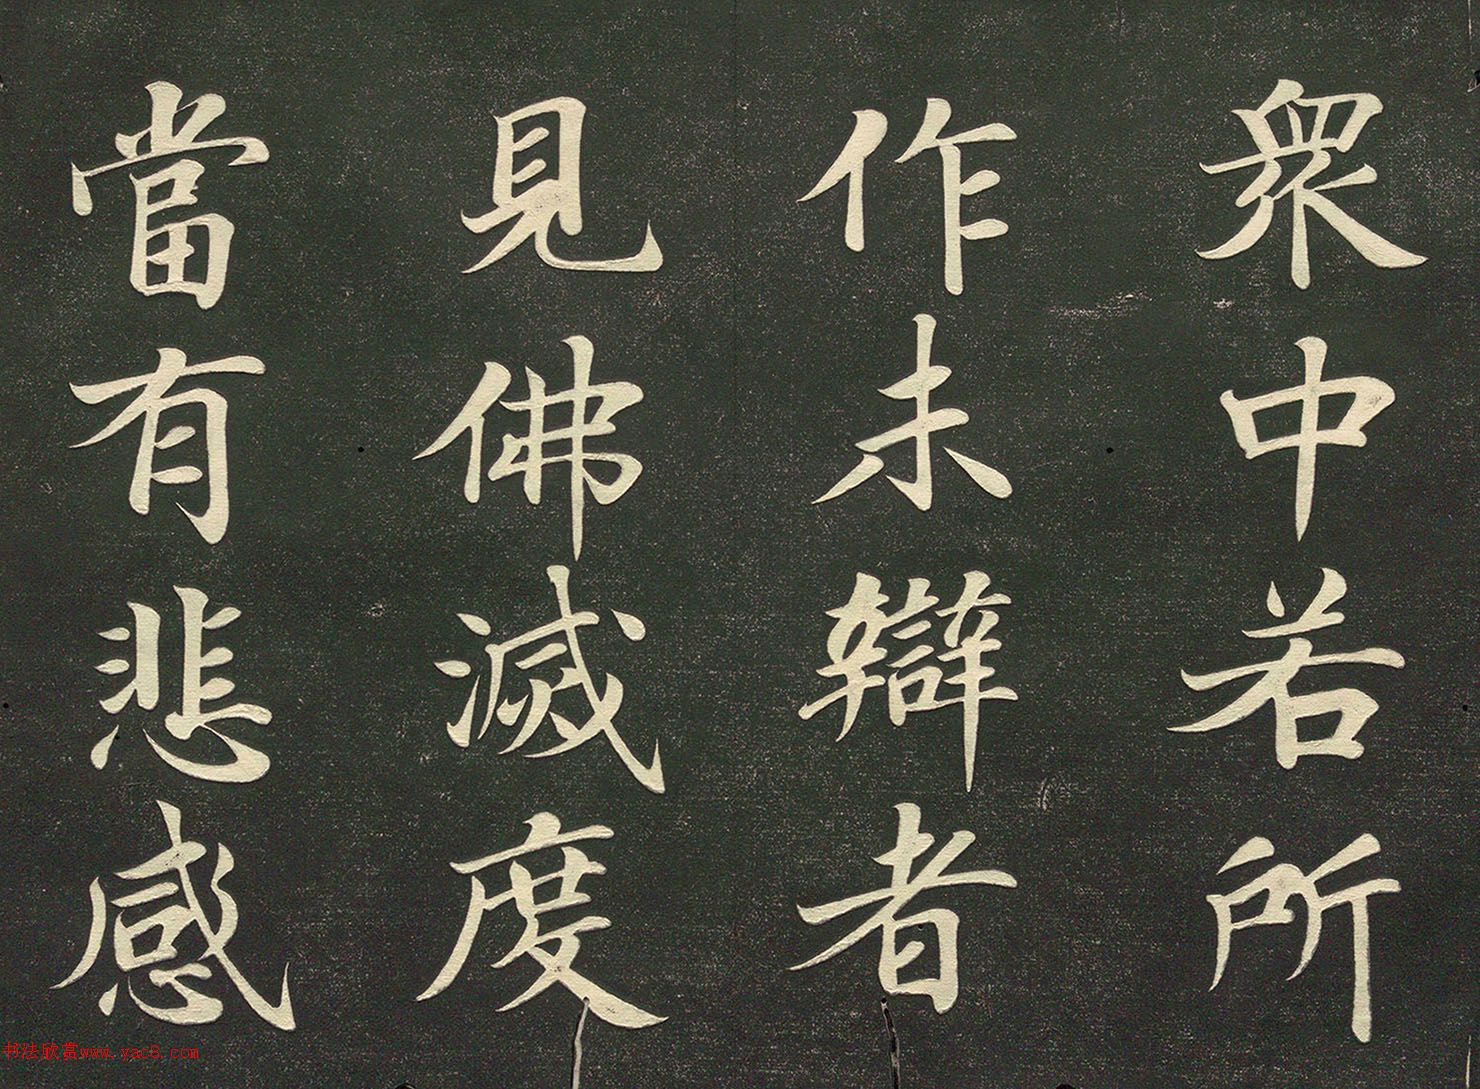 眾中若所
作未辯者
見佛滅度
當有悲感
书法欣赏www.yac8.com